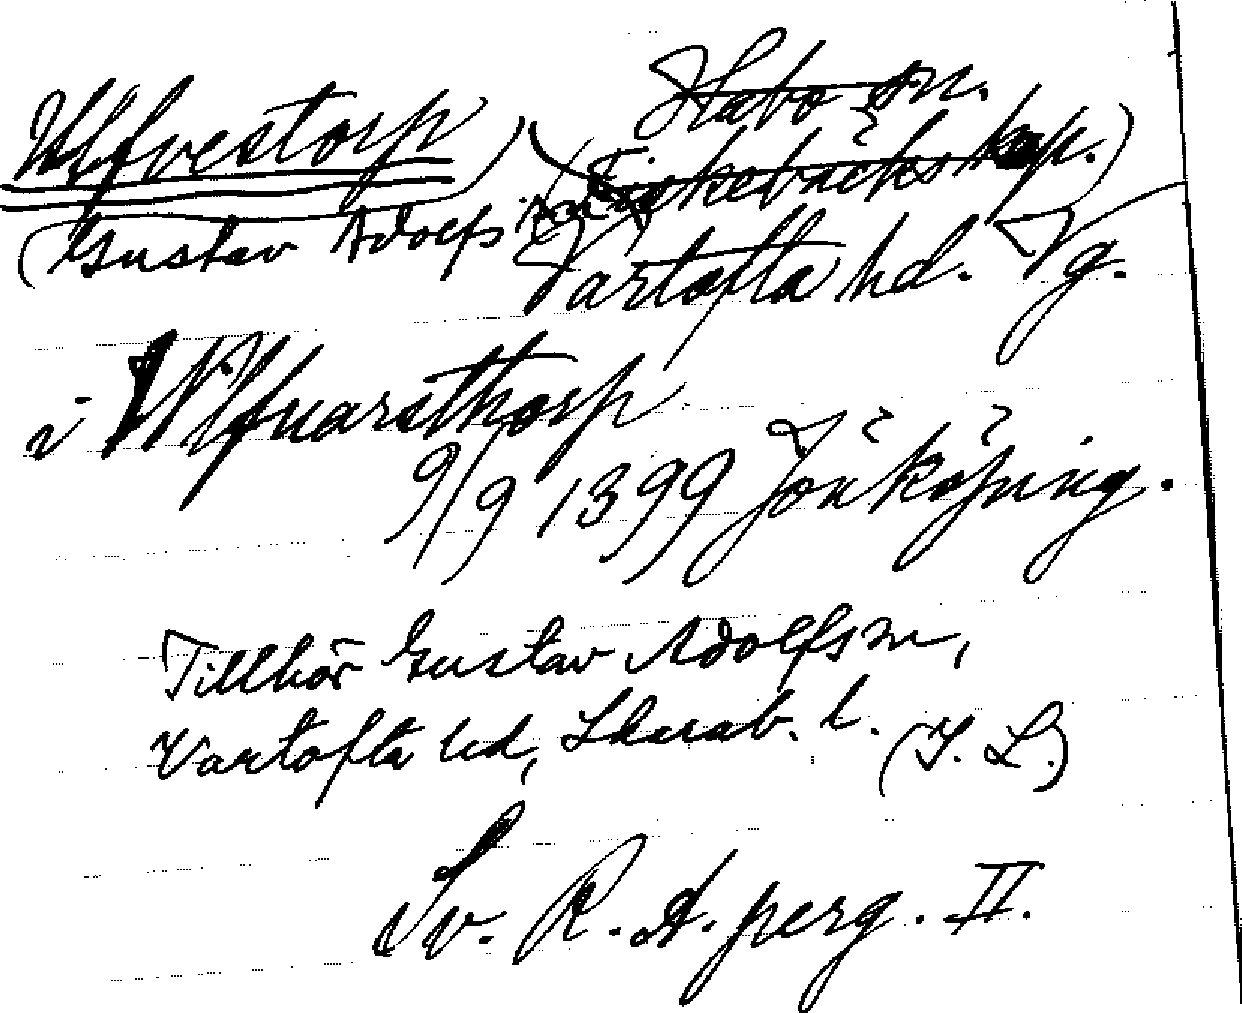 Ulfvestorp Habo sn.
Fiskebäcks kap.)
(Gustav Adolfs
Vartofta hd. Vg.
i Vlfuarsthorp
9/9 1399 Jönköping.
Tillhör Gustav Adolfs sn,
Vartofta hd, Skarab. l. (I. L.)
Sv. R. A. perg. II.